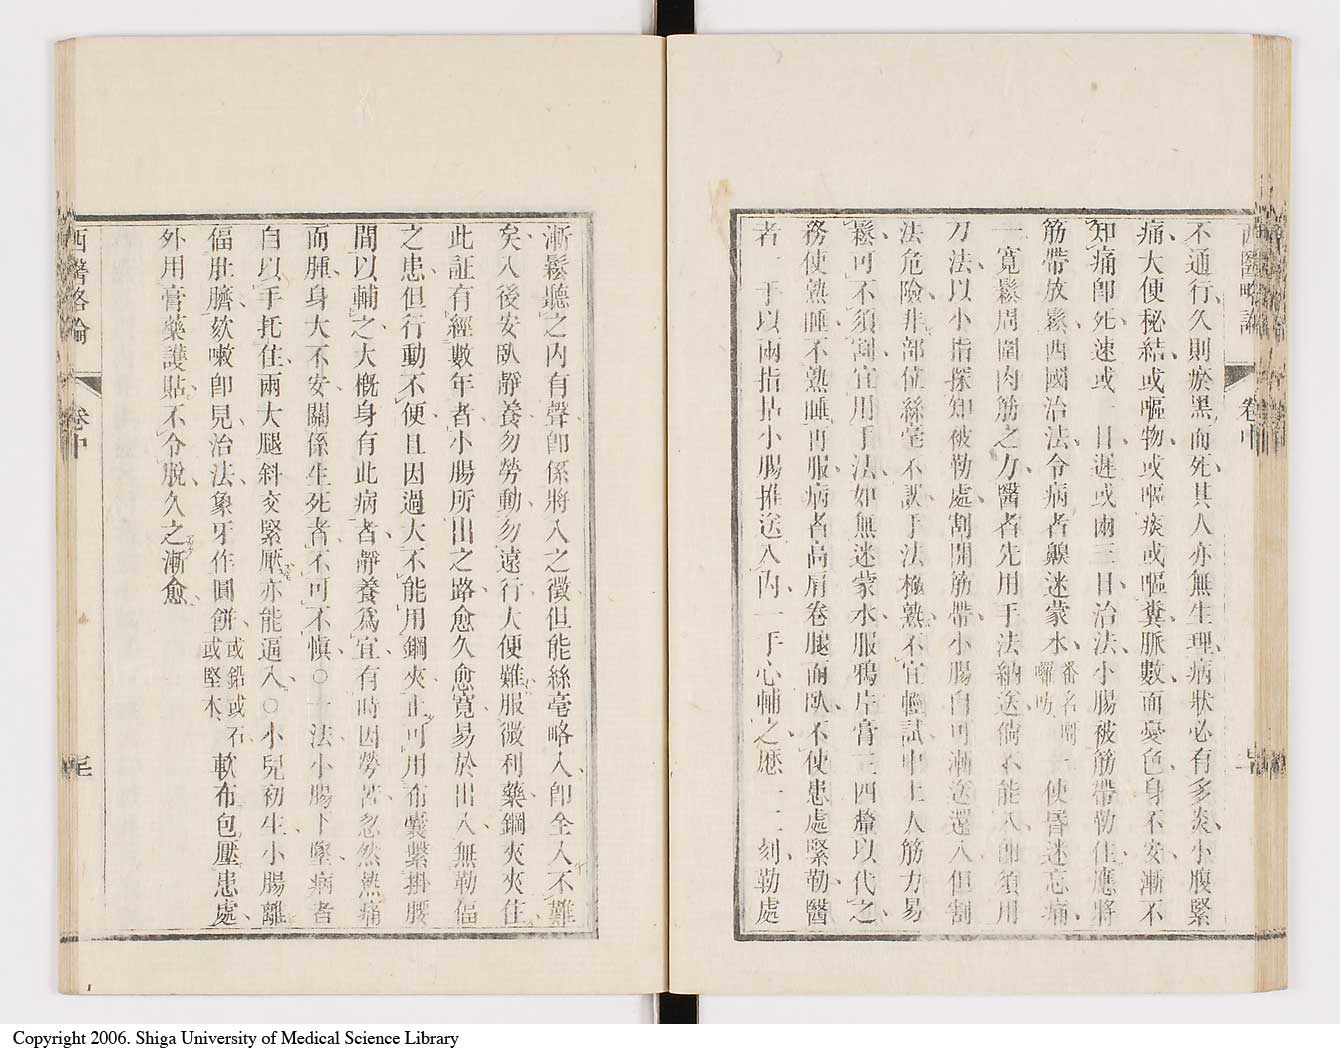 西醫略論 卷中
不通行久則瘀黑而死其人亦無生理病狀必有多炎小腹緊
痛大便秘結或嘔物或嘔痰或嘔糞脈數面憂色身不安漸不
知痛卽死速或一日遲或兩三日治法小腸被筋帶勒住應將
筋帶放鬆西國治法令病者齅迷蒙水番名嗰囉吩一使昏迷忘痛
一寬鬆周圍肉筋之力醫者先用手法納送倘不能入卽須用
刀法以小指探知被勒處割開筋帶小腸自可漸送還入但割
法危險非部位絲毫不誤手法極熟不宜輕試中土人筋力易
鬆可不須割宜用手法如無迷蒙水服鴉片膏三四釐以代之
務使熟睡不熟睡再服病者高肩卷腿而臥不使患處緊勒醫
者一手以兩指拈小腸推送入內一手心輔之歷一二刻勒處
漸鬆聽之內有聲卽係將入之徵但能絲毫略入卽全入不難
矣入後安臥靜養勿勞動勿遠行大便難服微利藥鋼夾夾住
此証有經數年者小腸所出之路愈久愈寬易於出入無勒傴
之患但行動不便且因過大不能用鋼夾止可用布囊繫掛腰
間以輔之大槪身有此病者靜養爲宜有時因勞苦忽然熱痛
而腫身大不安關係生死者不可不愼○一法小腸下墜病者
自以手托住兩大腿斜交緊壓亦能逼入○小兒初生小腸離
傴肚臍欬嗽卽見治法象牙作圓餅或鉛或石或堅木軟布包壓患處
外用膏藥護貼不令脫久之漸愈
西醫略論 卷中